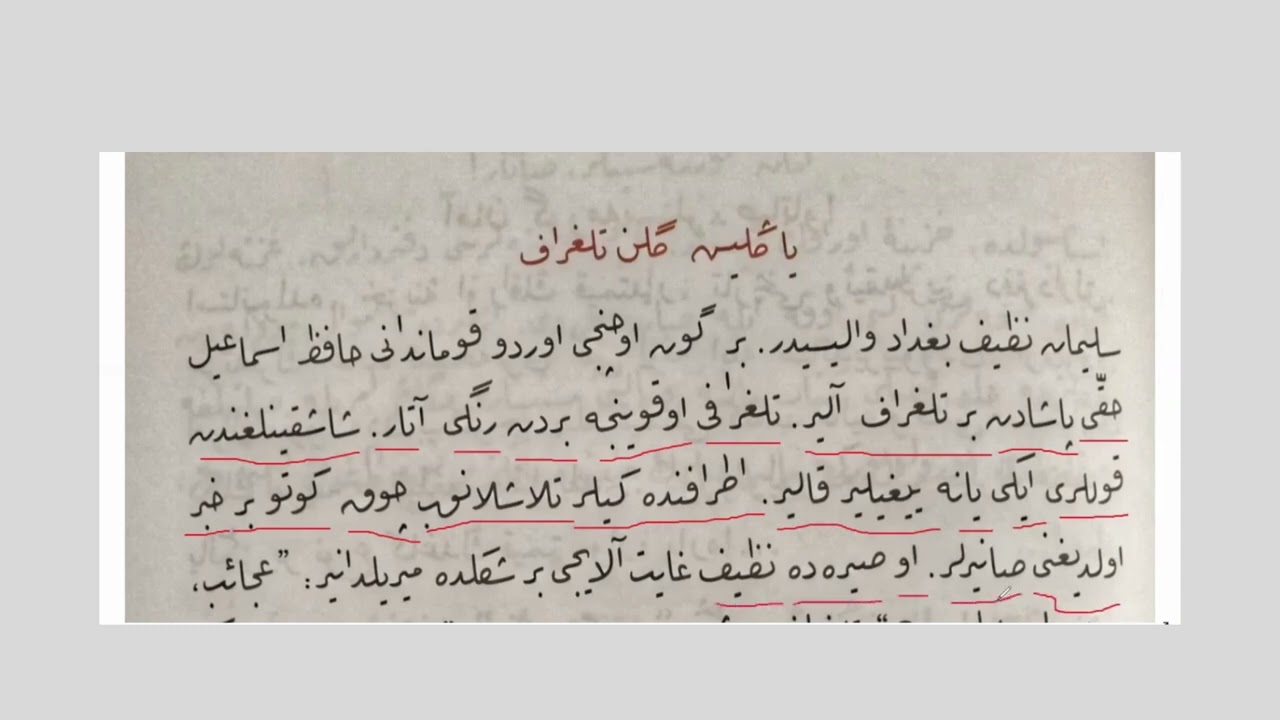 ياڭليش گلن تلغراف
سليمان نظيف بغداد واليسيدر. بر گون اوچنجى اوردو قوماندانى حافظ اسماعيل
حقّى پاشادن بر تلغراف آلير. تلغرافى اوقوينجه بردن رنگى آتار. شاشقينلغندن
قوللرى ايكى يانه ييغيلير قالير. اطرافنده كيلر تلاشلانوب چوق كوتو بر خبر
اولديغنى صانيرلر. او صيره ده نظيف غايت آلايجى بر شكلده ميريلدانير: ”عجائب،